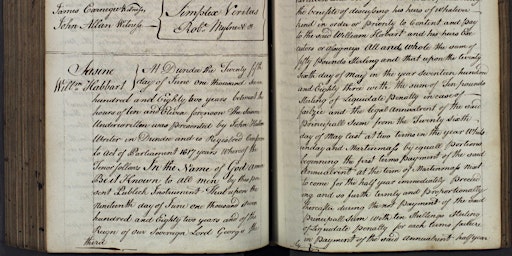 James Carnegie Witness
John Allan Witness
Simplex Veritas
Robt. Mylne N.P.
Sasine
Willm Habbart
At Dundee the Twenty fifth
day of June one thousand seven
hundred and Eighty two years betwixt the
hours of ten and Eleven forenoon The Sasine
Underwritten was presented by John
Writer in Dundee and is Registred Conform
to Act of Parliament 1617 years Whereof the
Tenor follows In the Name of God amen
Be it Known to all men by this pre
sent Publick Instrument That upon the
Nineteenth day of June one thousand seven
hundred and Eighty two years and of the
Reign of our Sovereign Lord George the
third
the benefite of discussing his heirs of whatever
kind in order or priority to Content and pay
to the said William Hobart and his heirs Exe
cutors or assigneys All and whole the sum of
fifty Pounds Sterling and that upon the twenty
sixth day of May in the year seventeen hundred
and Eighty three with the sum of Ten pounds
Sterling of Liquidate Penalty in case of
failzie and the legal annualrent of the said
Principall Sum from the Twenty Sixth
day of May last at two terms in the year Whit
sunday and Martinmass by equall portions
beginning the first terms payment of the said
Annualrent at the term of Martinmass next
to come for the half year immediately preceed
ing and so furth termly and proportionally
thereafter during the not payment of the said
Principall Sum With ten Shillings Sterling
of Liquidate penalty for each terms failzie
in payment of the said annualrent half year